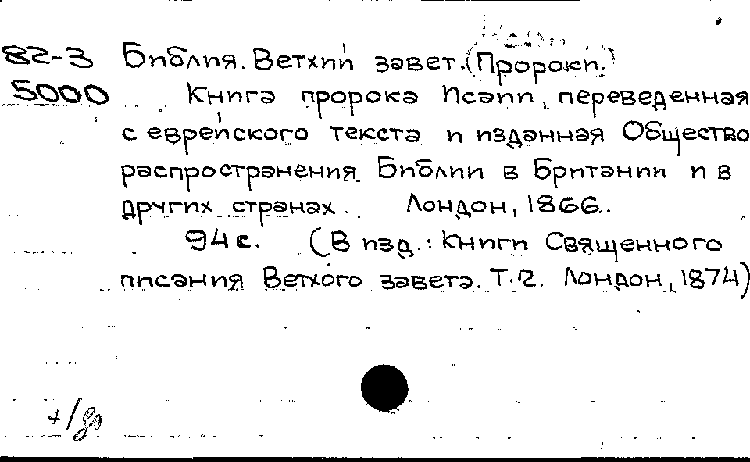 82-3 Библия. Ветхий завет. (Пророки.)
5000 Книга пророка Исаии, переведенная
с еврейского текста и изданная Общество
распространения Библии в Британии и в
других странах. Лондон, 1866.
94 с. (В изд.: Книги Священного
писания Ветхого завета. Т.2. Лондон, 1874)